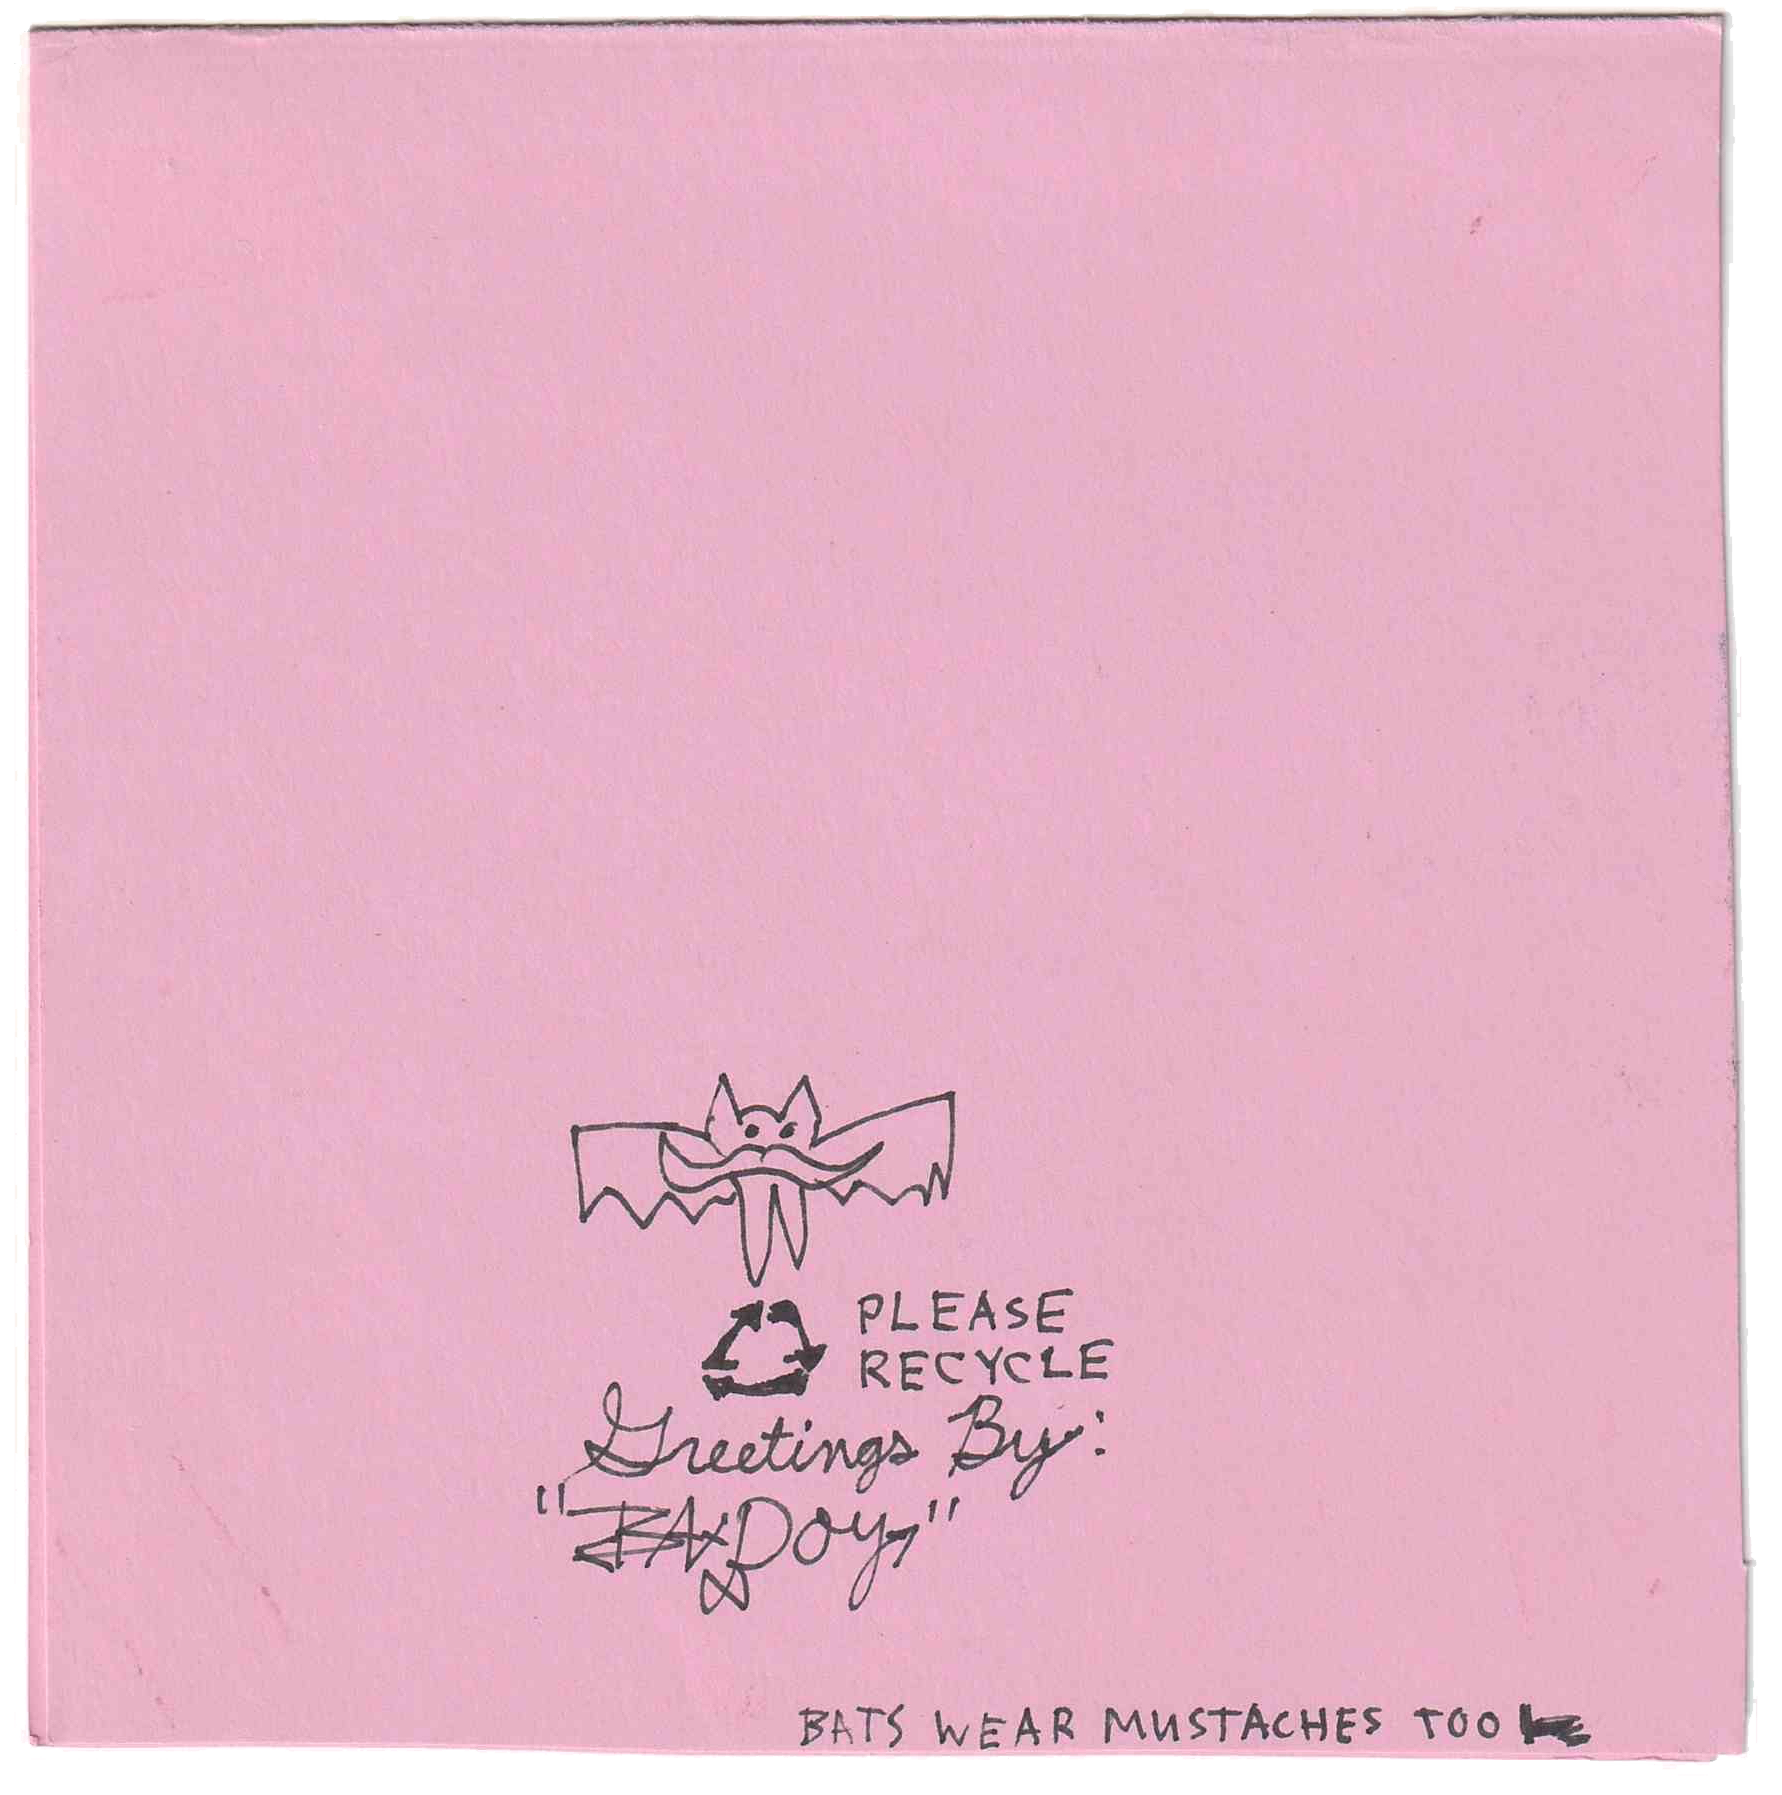 PLEASE
RECYCLE
Greetings By:
BATS WEAR MUSTACHES TOO